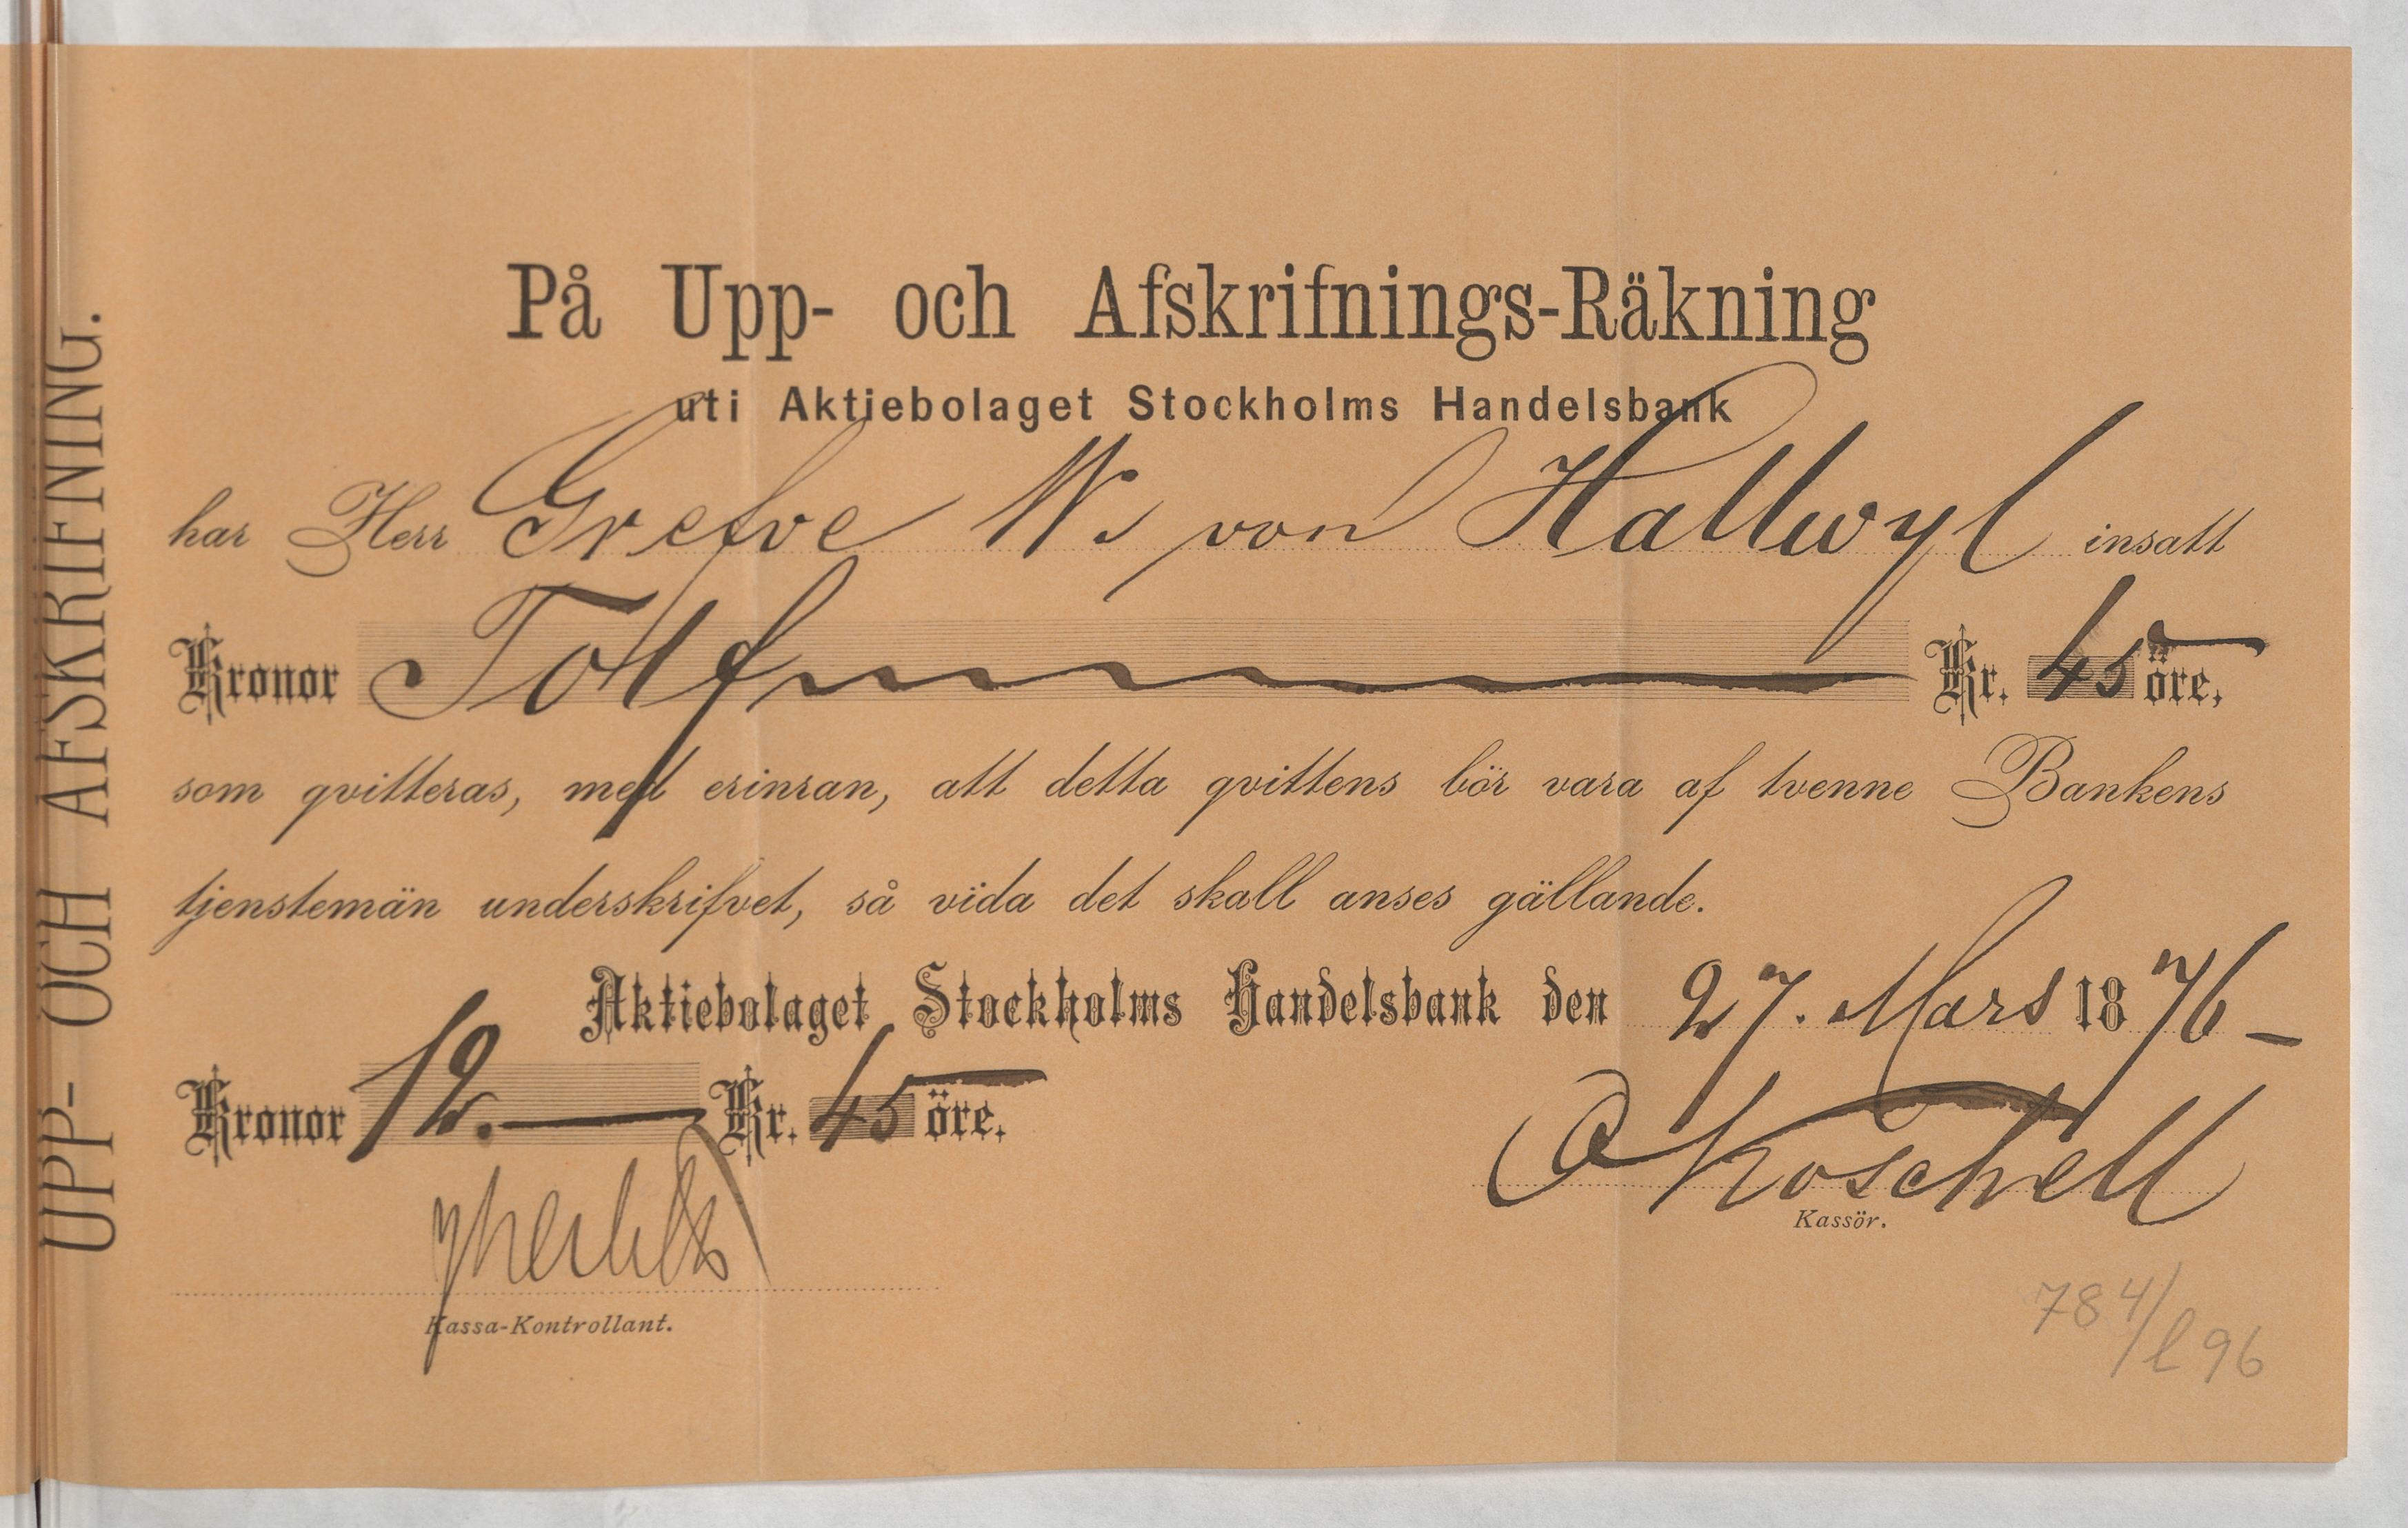 UPP- OCH AFSKRIFNING.
På Upp- och Afskrifnings-Räkning
uti Aktiebolaget Stockholms Handelsbank
har Herr Grefve W. von Hallwyl insatt
Kronor Tolf Kr. 45 öre,
som qvitteras, med erinran, att detta qvittens bör vara af tvenne Bankens
tjenstemän underskrifvet, så vida det skall anses gällande.
Aktiebolaget Stockholms Handelsbank den 27. Mars 1876
Kronor 12.— Kr. 45 öre.
O Koschell
Kassör.
Kassa-Kontrollant.
784/l 96